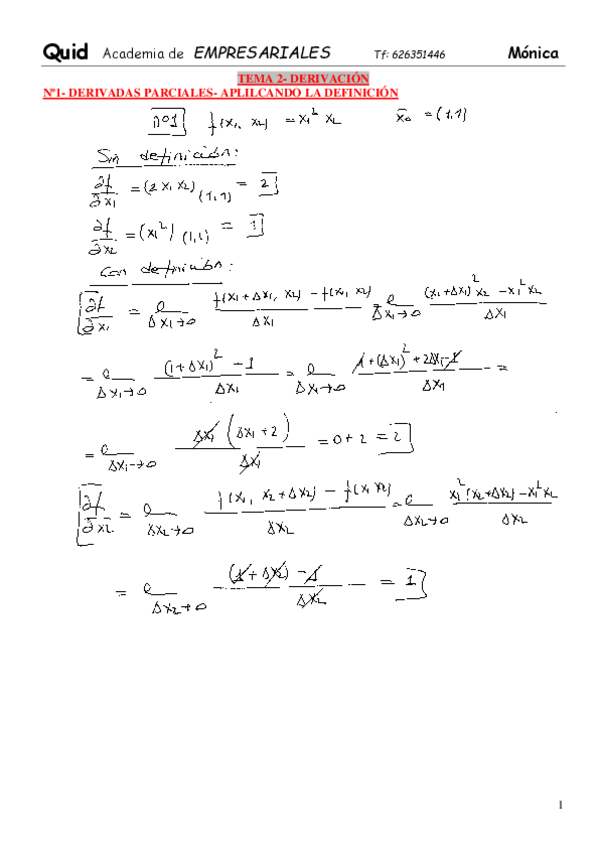 Quid Academia de EMPRESARIALES Tf: 626351446 Mónica
TEMA 2- DERIVACIÓN
Nº1- DERIVADAS PARCIALES- APLILCANDO LA DEFINICIÓN
nº1 f(x₁, x₂) = x₁² x₂ x̄₀ = (1,1)
Sin definición:
∂f/∂x₁ = (2 x₁ x₂) (1,1) = 2
∂f/∂x₂ = (x₁²) (1,1) = 1
Con definición:
∂f/∂x₁ = l Δx₁→0 (f(x₁ + Δx₁, x₂) - f(x₁, x₂))/Δx₁ = l Δx₁→0 ((x₁ + Δx₁)² x₂ - x₁² x₂)/Δx₁
= l Δx₁→0 ((1 + Δx₁)² - 1)/Δx₁ = l Δx₁→0 (1 + (Δx₁)² + 2Δx₁ - 1)/Δx₁ =
= l Δx₁→0 (Δx₁ (Δx₁ + 2))/Δx₁ = 0 + 2 = 2
∂f/∂x₂ = l Δx₂→0 (f(x₁, x₂ + Δx₂) - f(x₁ x₂))/Δx₂ = l Δx₂→0 (x₁² (x₂ + Δx₂) - x₁² x₂)/Δx₂
= l Δx₂→0 ((1 + Δx₂) - 1)/Δx₂ = 1
1